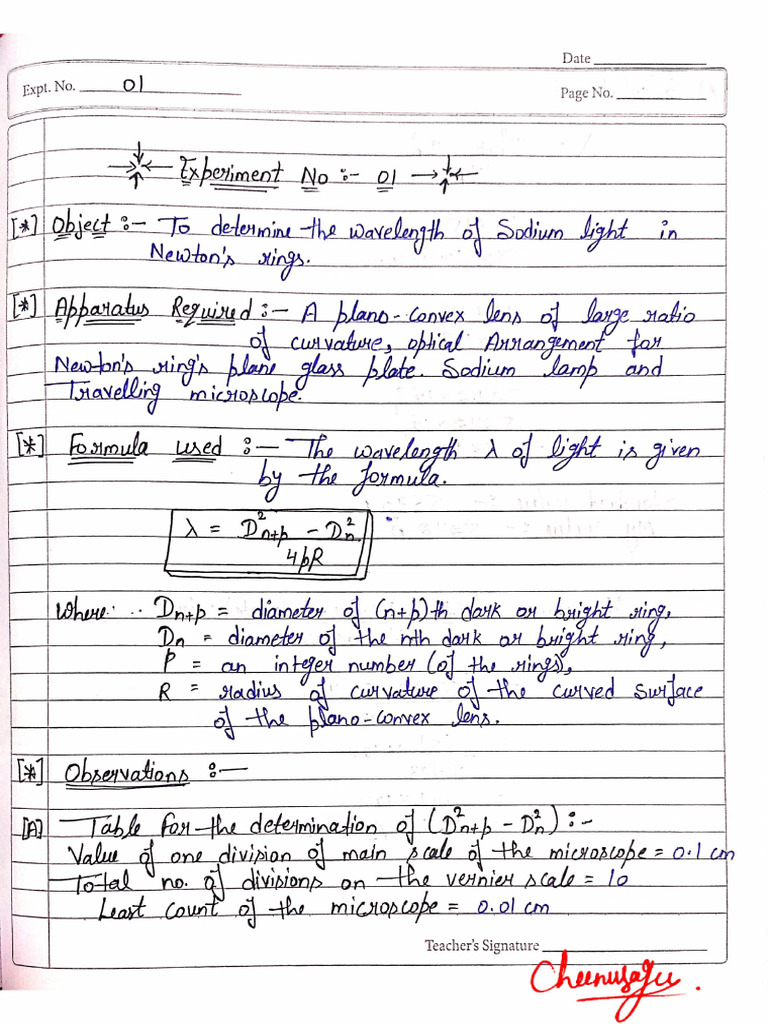 Date
Expt. No. 01
Page No.
Experiment No :- 01
[*] Object :- To determine the wavelength of Sodium light in
Newton's rings.
[*] Apparatus Required :- A plano-convex lens of large ratio
of curvature, optical Arrangement for
Newton's ring's plane glass plate. Sodium lamp and
Travelling microscope.
[*] Formula used :- The wavelength λ of light is given
by the formula.
λ = D²n+p - D²n / 4pR
where: .. Dn+p = diameter of (n+p)th dark or bright ring,
Dn = diameter of the nth dark or bright ring,
P = an integer number (of the rings),
R = radius of curvature of the curved surface
of the plano-convex lens.
[*] Observations :-
[A] Table for the determination of (D²n+p - D²n) :-
Value of one division of main scale of the microscope = 0.1 cm
Total no. of divisions on the vernier scale = 10
Least Count of the microscope = 0.01 cm
Teacher's Signature